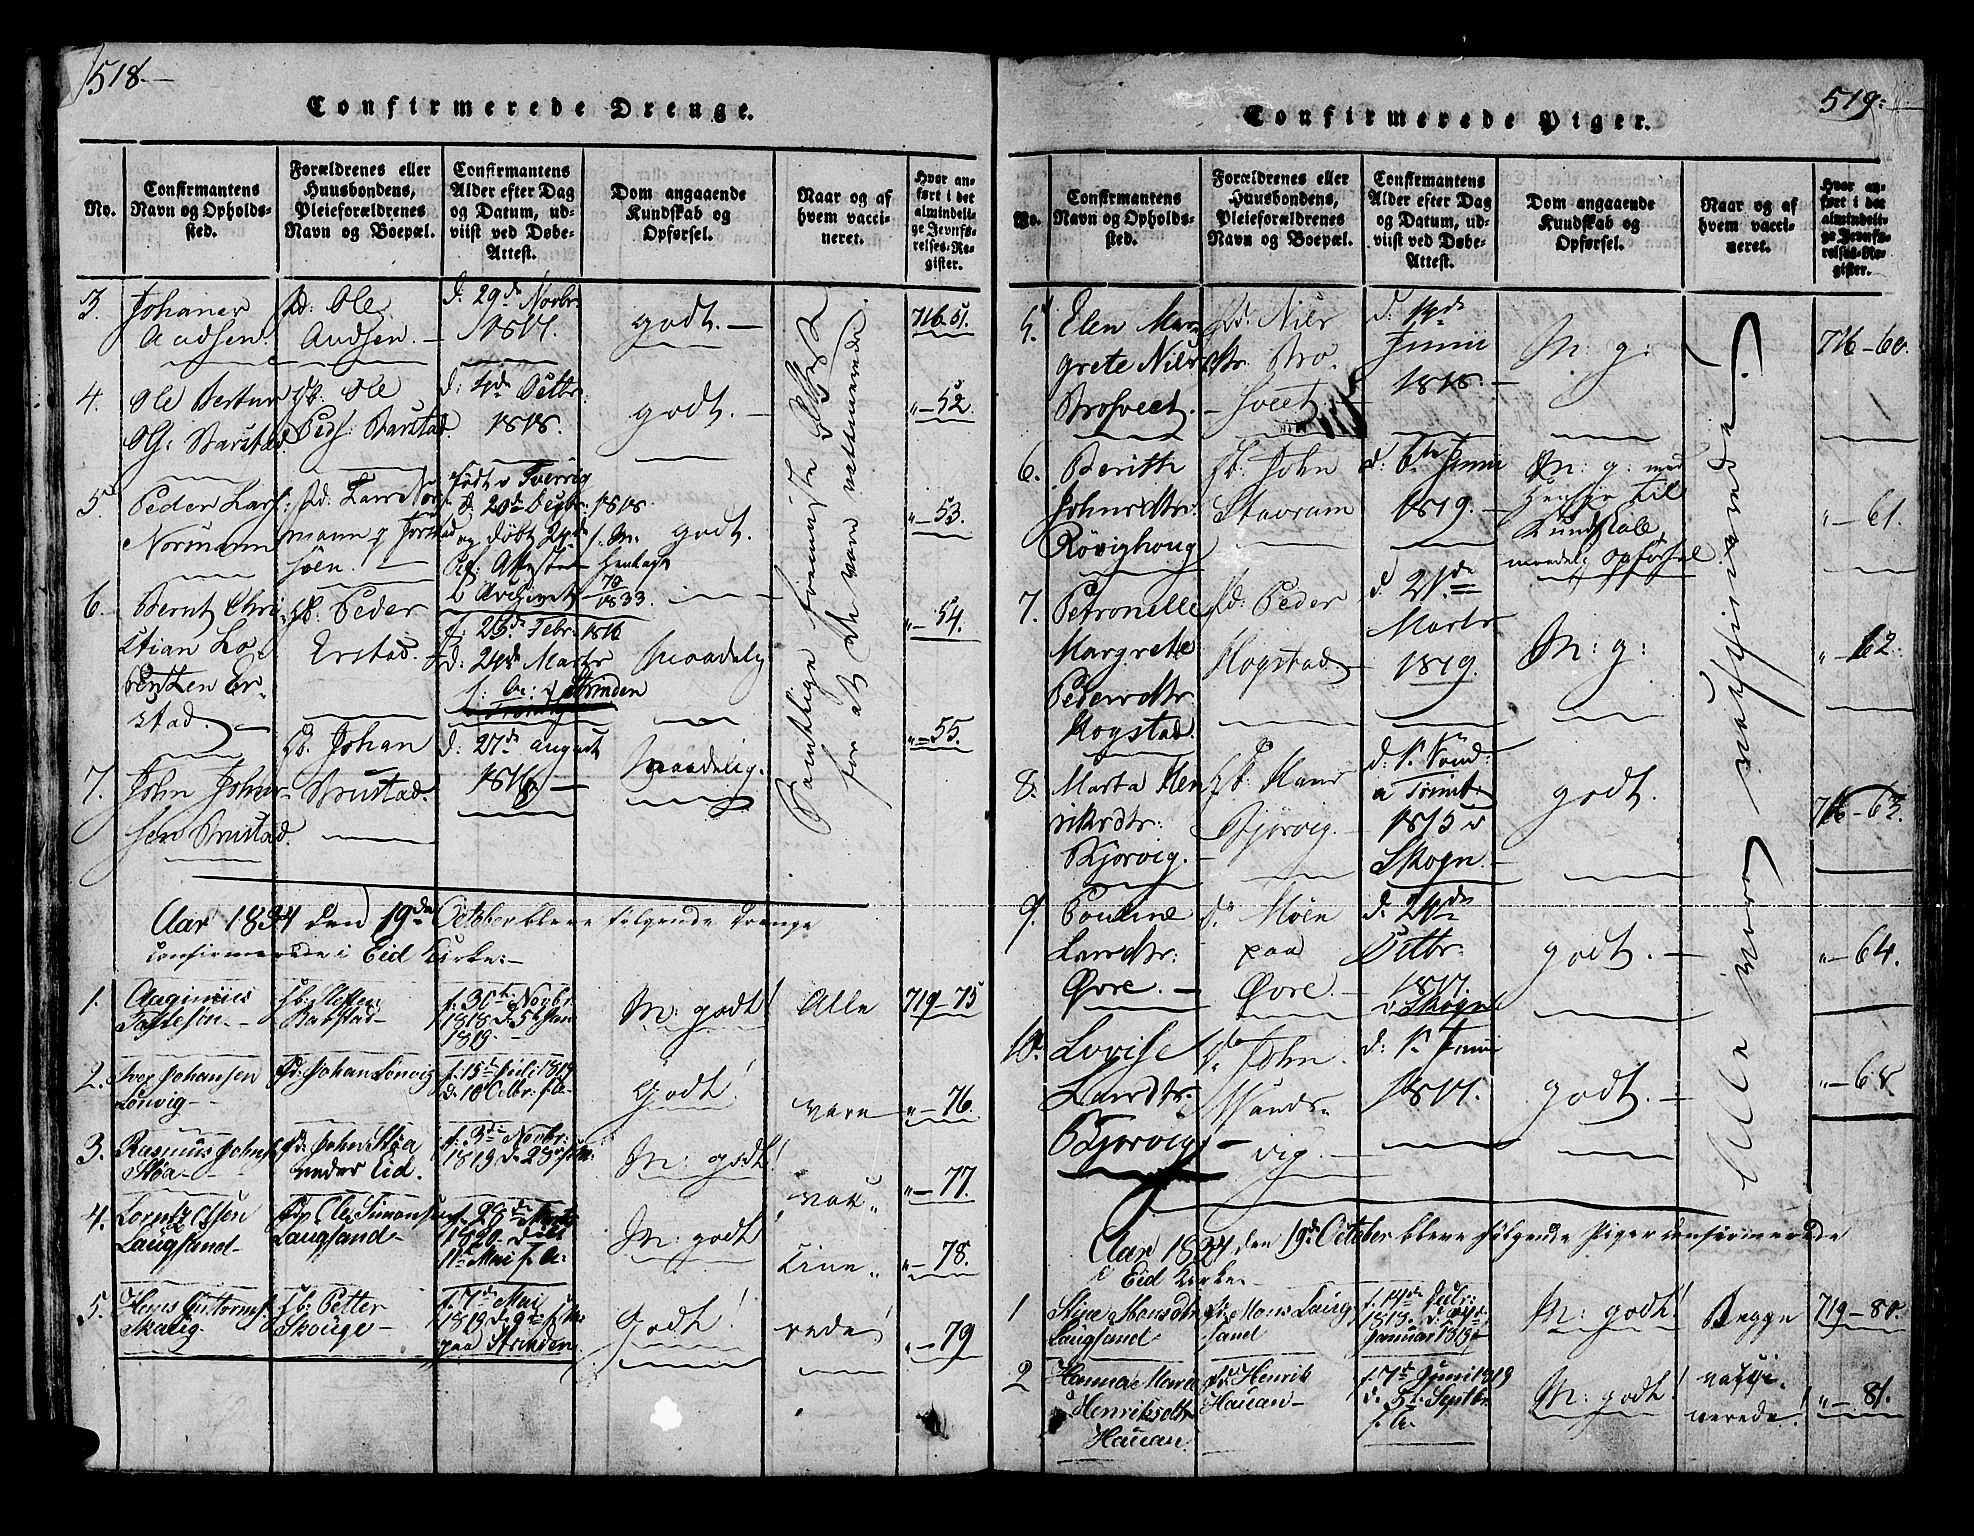 518.
Confirmerede Drenge.
No.
Confirmantens
Navn og Opholds-
sted.
Forældrenes eller
Huusbondens,
Pleieforældrenes
Navn og Boepæl.
Confirmantens
Alder efter Dag
og Datum, ud-
viist ved Døbe-
Attest.
Dom angaaende
Kundskab og
Opførsel.
Naar og af
hvem vacci-
neret.
Hvor an-
ført i det
almindeli-
ge Jevnfø-
relses-Re-
gister.
3. Johanes
Audsen.
Ole
Audsen.
d. 29de Novbr.
1817.
godt.
716-51.
4. Ole
Ols: Barstad
Ole
Peds: Barstad.
d: 4de Octbr:
1818.
godt.
"-52.
5. Peder Lars:
Normann
født i Sverrig
d. 20de Decbr: 1818
og døbt 24de
1833.
godt.
"-53.
6. Bernt Chri-
stian Lo-
rentzen Er-
stad.
Peder
Erstad.
f. 26de Febr. 1816
d: 24de Marts
Strinden
maadelig
"-54.
7. John Johan-
sen Brustad.
Johan
Brustad.
d: 27de august
1816
maadelig.
"-55.
Samtlige foreviste Attest
for at de vare vaccinerede.
Aar 1834 den 19de October bleve følgende Drenge
confirmerede i Eid Kirke:-
1. Steffen
Rabstad
f. 30te Novbr.
1818 d. 5te Jan
1819.
M: godt!
Alle
719-75
2. Iver Johansen
Lonvig
Johan Lonvig
f. 15de Juli 1819
d. 18 Octbr. f.A.
Godt!
vare
"-76.
3. Rasmus Johns.
Støa
John Støa
under Eid.
f. 3de Novbr:
1819 d. 28
M: godt!
vak-
"-77.
4. Lorntz Olsen
Laugsand
Ole Simonsen
Laugsand
f. 23de Marts
1820 døbt
11te Mai f.A.
M: godt
cine-
"-78.
5. Skaug.
Petter
Skouge
f. 7de Mai
1819 d. 9de
paa Strinden
Godt!
rede!
"-79
519.
Confirmerede Piger.
No.
Confirmantens
Navn og Opholds-
sted.
Forældrenes eller
Huusbondens,
Pleieforældrenes
Navn og Boepæl.
Confirmantens
Alder efter Dag
og Datum, ud-
viist ved Døbe-
Attest.
Dom angaaende
Kundskab og
Opførsel.
Naar og af
hvem vacci-
neret.
Hvor an-
ført i det
almindeli-
ge Jevnfø-
relses-Re-
gister.
5. Elen Mar-
grete Nils
Brosveet.
Nils
Bro-
sveet.
d. 14de
Junii
1818.
M: g:
716-60.
6. Berith
Johnsdtr.
Røvighoug
John
Stavram
d: 6te Junii
1819.
M: g: med
Hensyn til
Kundskab
maadelig Opførsel
"-61.
7. Petronelle
Margrete
Pedersdtr.
Hogstad.
Peder
Hogstad
d. 21de
Marts
1819.
M: g:
"-62.
8. Marta Hen
riksdtr:
Bjørvig.
Hans
Bjørvig.
d. 1ste Sønd:
a Trinit:
1815 i
Skogn.
godt.
716-63.
9. Pouline
Larsdtr:
Øvre.
Moen
paa
Øvre.
d. 24de
Octbr.
1817.
i Skogn
godt.
"-64.
10. Lovise
Larsdtr.
Bjørvig
John
Mands-
vig.
d: 1ste Junii
1817.
godt.
"-68
Alle vare vaccinerede.
Aar 1834 den 19de October bleve følgende Piger confirmerede
i Eid Kirke
1 Stine Monsdtr
Laugsand
Mons Laug-
sand
f. 14de Juli
Januar
M: godt!
Begge
719-80.
2 Hanna Marie
Henriksdtr
Hauan.
Henrik
Hauan
f. 7de Juni 1819
d. 5te Septbr
f.A.
M: godt!
vaksi-
nerede!
"-81.